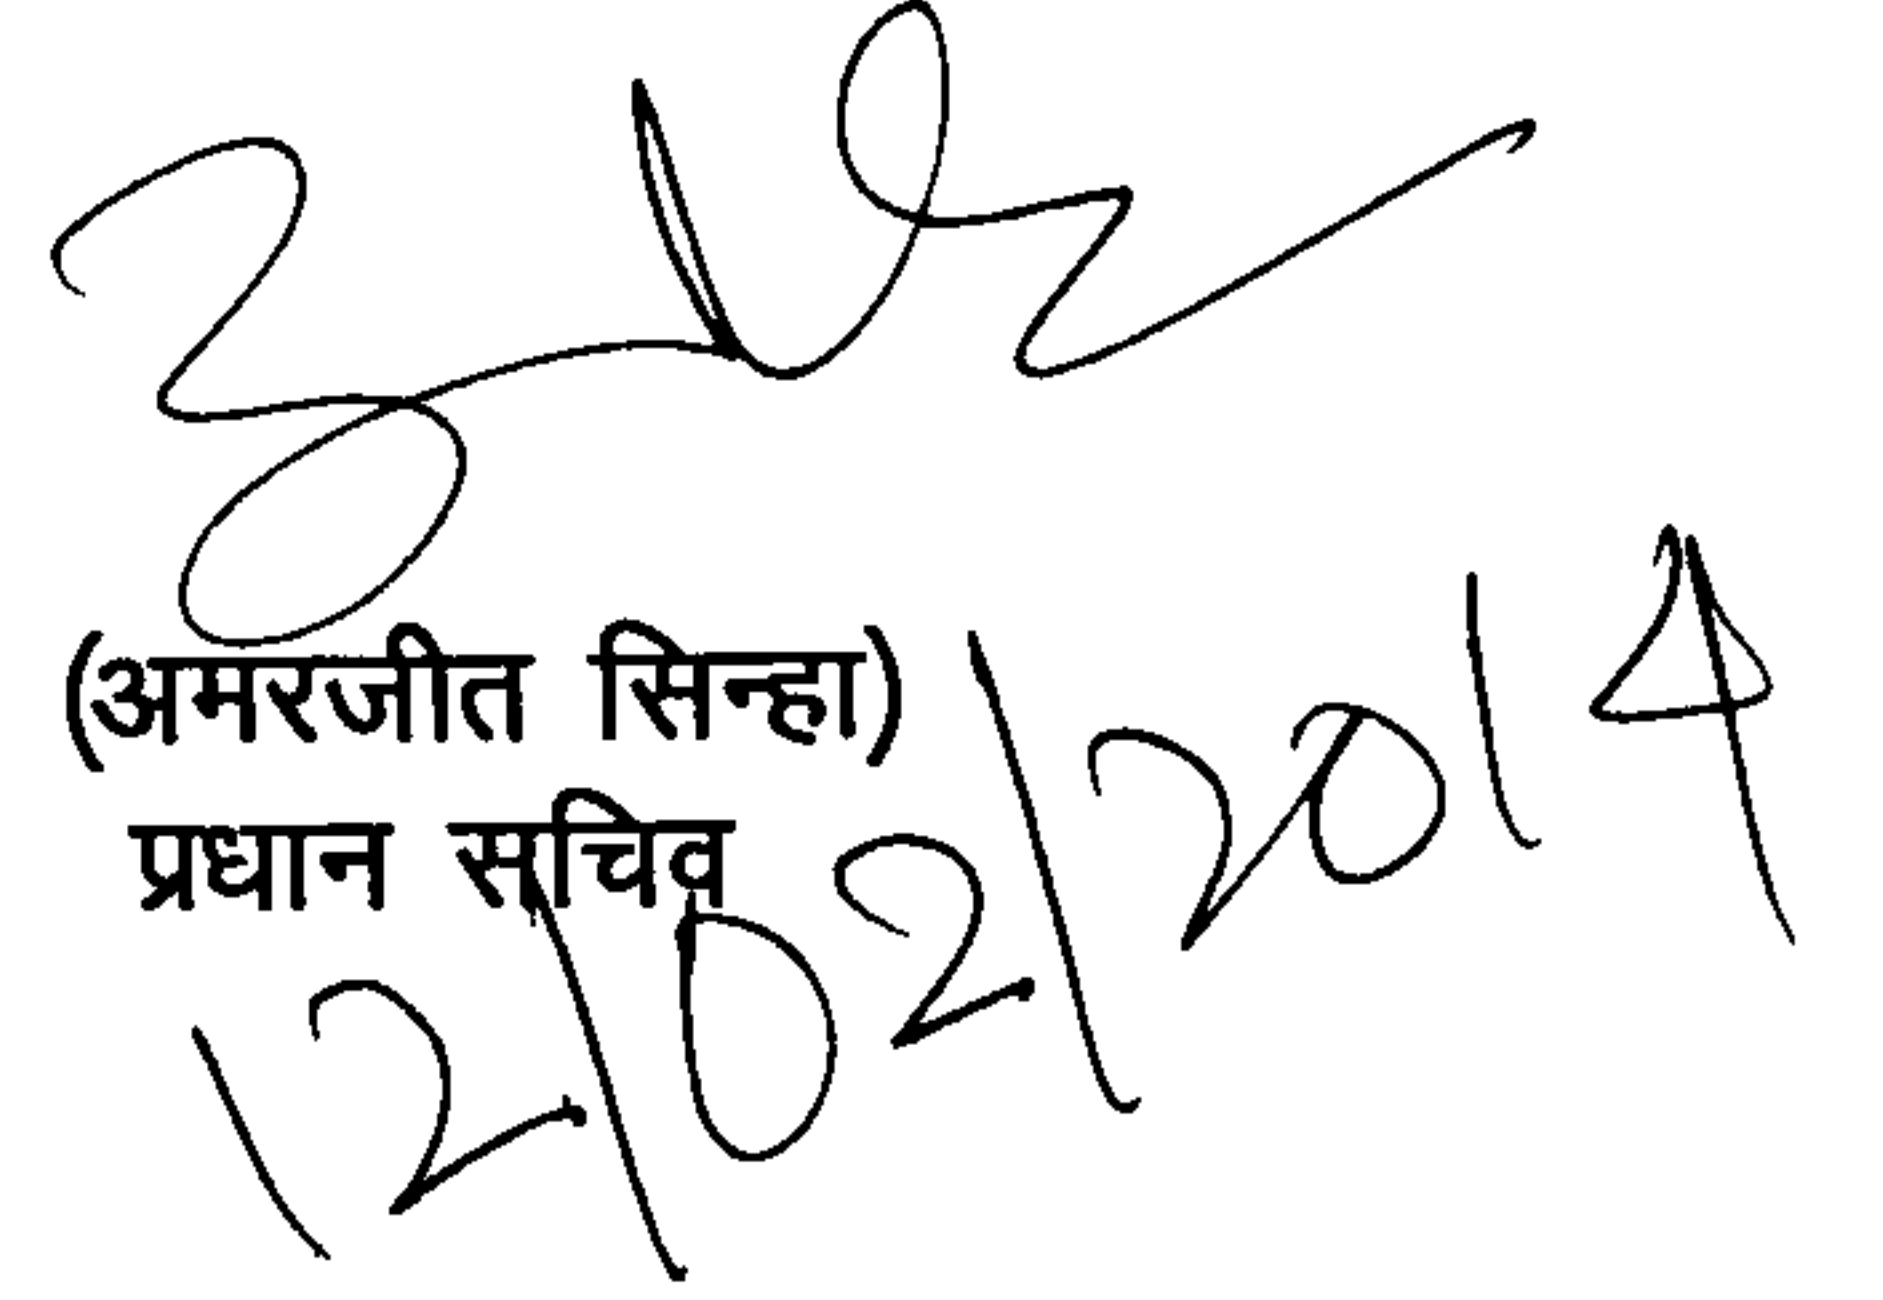 (अमरजीत सिन्हा)
प्रधान सचिव
12/02/2014